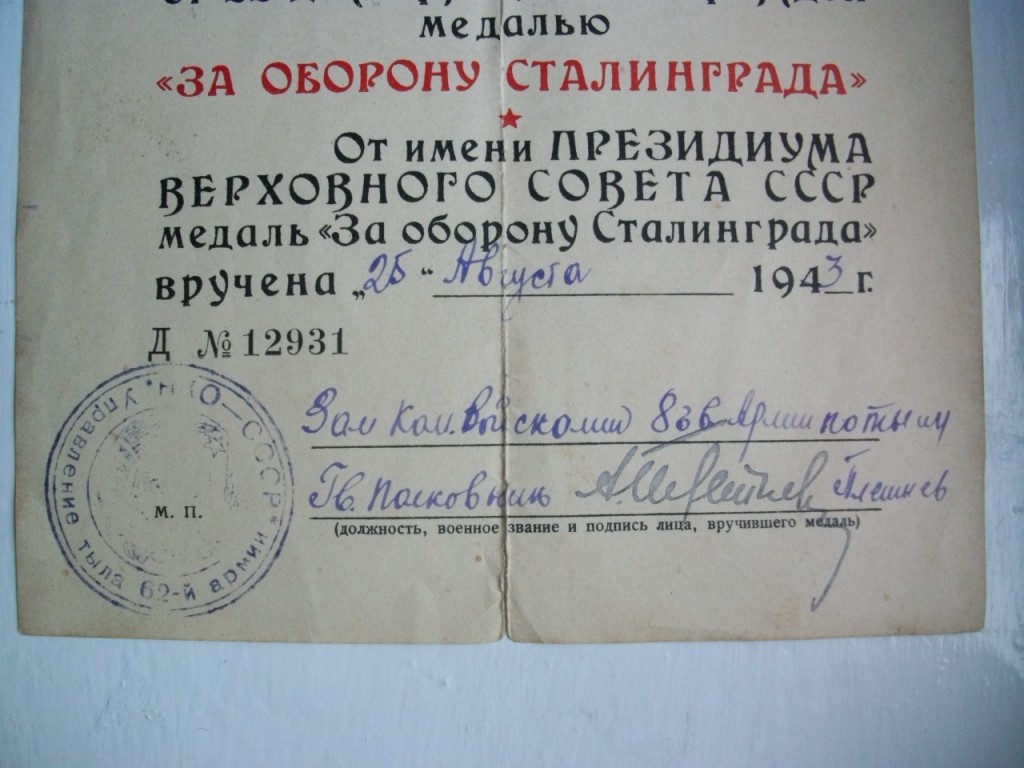 медалью
«ЗА ОБОРОНУ СТАЛИНГРАДА»
От имени ПРЕЗИДИУМА
ВЕРХОВНОГО СОВЕТА СССР
медаль «За оборону Сталинграда»
вручена „25“ Августа 1943 г.
Д № 12931
Зам Ком. Войсками 8 гв Армии по тылу
Гв. Полковник
(должность, военное звание и подпись лица, вручившего медаль)
М. П.
НКО—СССР
Управление тыла 62-й армии